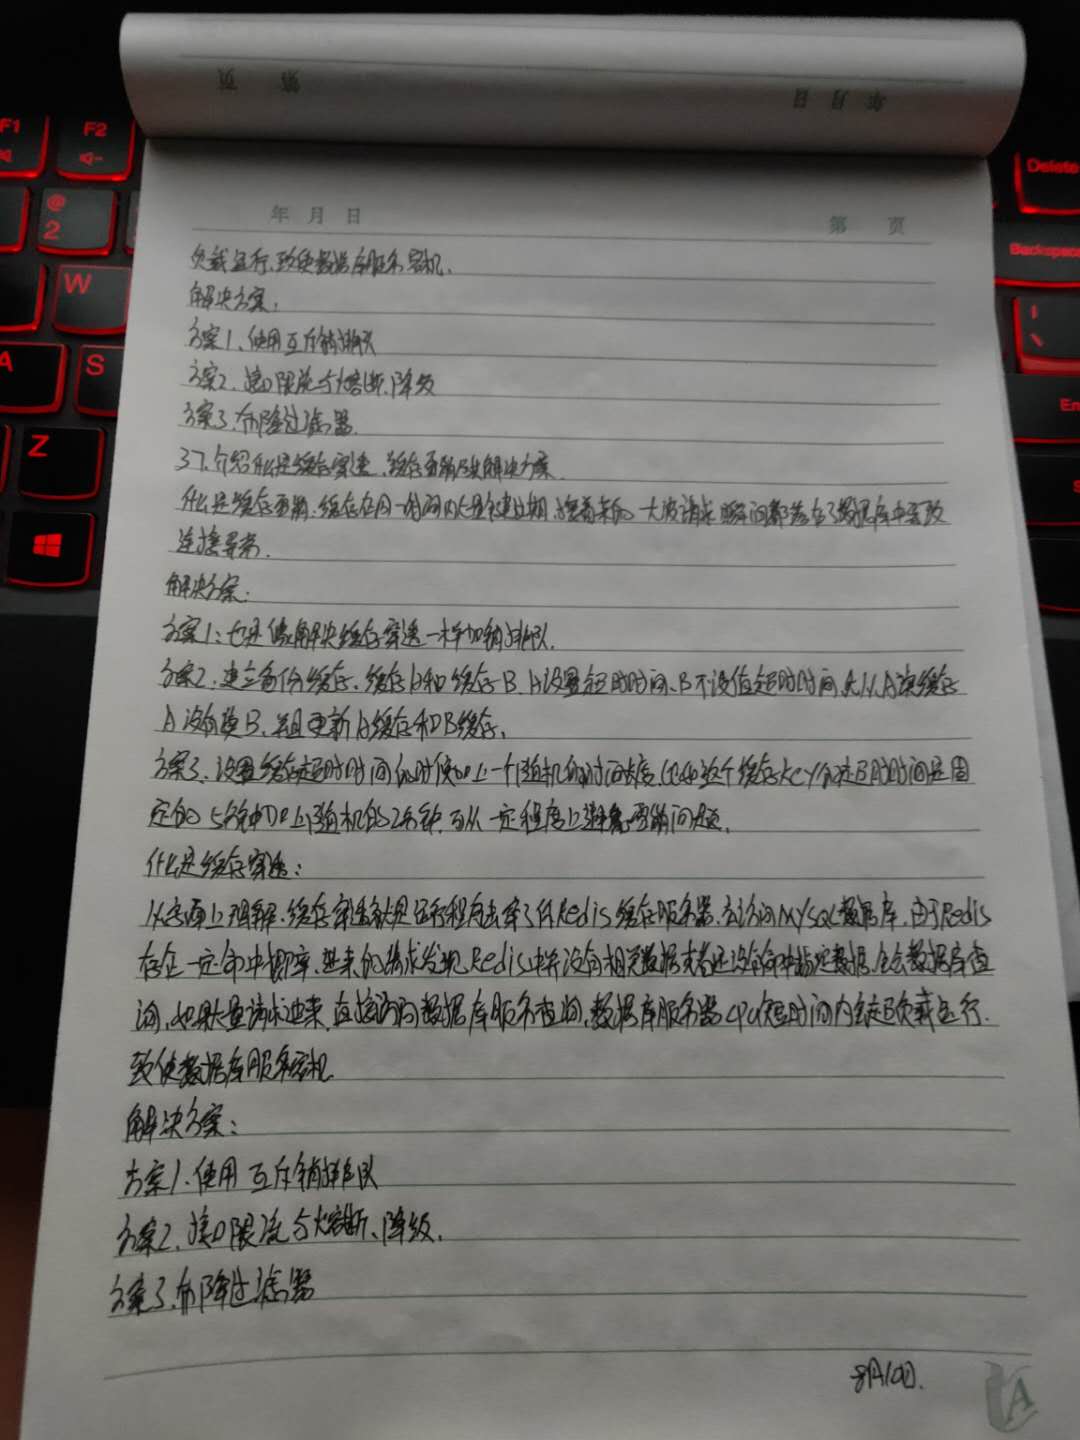 第 页
年 月 日
F1
F2
Delete
Backspace
@
2
W
A
S
Z
年 月 日 第 页
负载运行,致使数据库服务宕机.
解决方案:
方案1、使用互斥锁排队
方案2、接口限流与熔断、降级
方案3、布隆过滤器.
37、介绍什么是缓存穿透、缓存雪崩及其解决方案.
什么是缓存雪崩:缓存在同一时间内大量键过期,接着来的一大波请求瞬间都落在了数据库中导致
连接异常.
解决方案:
方案1:也是像解决缓存穿透一样加锁排队.
方案2:建立备份缓存,缓存A和缓存B,A设置超时时间,B不设值超时时间,先从A读缓存
A没有读B,并且更新A缓存和B缓存.
方案3、设置缓存超时时间的时候加上一个随机的时间长度,比如这个缓存key的超时时间是固
定的5分钟加上随机的2分钟,可从一定程度上避免雪崩问题.
什么是缓存穿透:
从字面上理解,缓存穿透就是运行程序击穿了你Redis缓存服务器,去访问MySQL数据库,由于Redis
存在一定命中概率,进来的请求发现Redis中并没有相关数据或者还没有命中指定数据,会去数据库查
询,如果大量请求进来,直接访问数据库服务查询,数据库服务器CPU短时间内会超负载运行.
致使数据库服务宕机.
解决方案:
方案1、使用互斥锁排队
方案2、接口限流与熔断、降级.
方案3、布隆过滤器
8月10日.
A